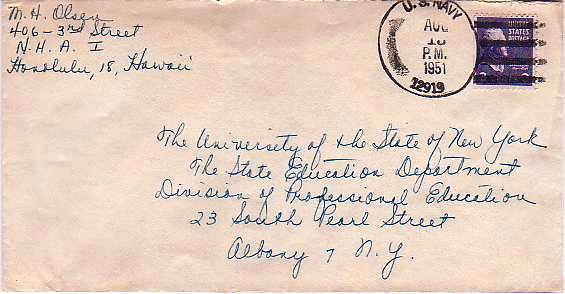 M. H. Olsen
406-3rd Street
N. H. A. I
Honolulu, 18, Hawaii
U.S. NAVY
AUG
P.M.
1951
12919
STATES
POSTAGE
The University of the State of New York
The State Education Department
Division of Professional Education
23 South Pearl Street
Albany 7 N.Y.